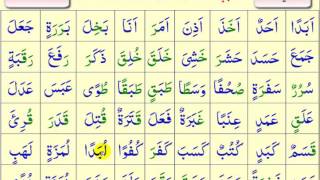 اَبَدًا اَحَدٌ اَخَذَ اَذِنَ اَمَرَ اَنَا بَخِلَ بَرَرَةٍ جَعَلَ
جَمَعَ حَسَدَ حَشَرَ خَشِىَ خَلَقَ خُلِقَ ذَكَرَ رَفَعَ رَقَبَةٍ
سُرُرٌ سَفَرَةٍ صُحُفًا وَسَطًا طَبَقٍ طَبَقًا طُوًى عَبَسَ عَدَلَ
عَلَقٍ عَمَدٍ عِنَبًا غَبَرَةٌ فَعَلَ قَتَرَةٌ قُتِلَ قَدَرَ قُرِئَ
قَسَمٌ كَبَدٍ كُتُبٌ كَسَبَ كَفَرَ كُفُوًا لُبَدًا لُمَزَةٍ لَهَبٍ